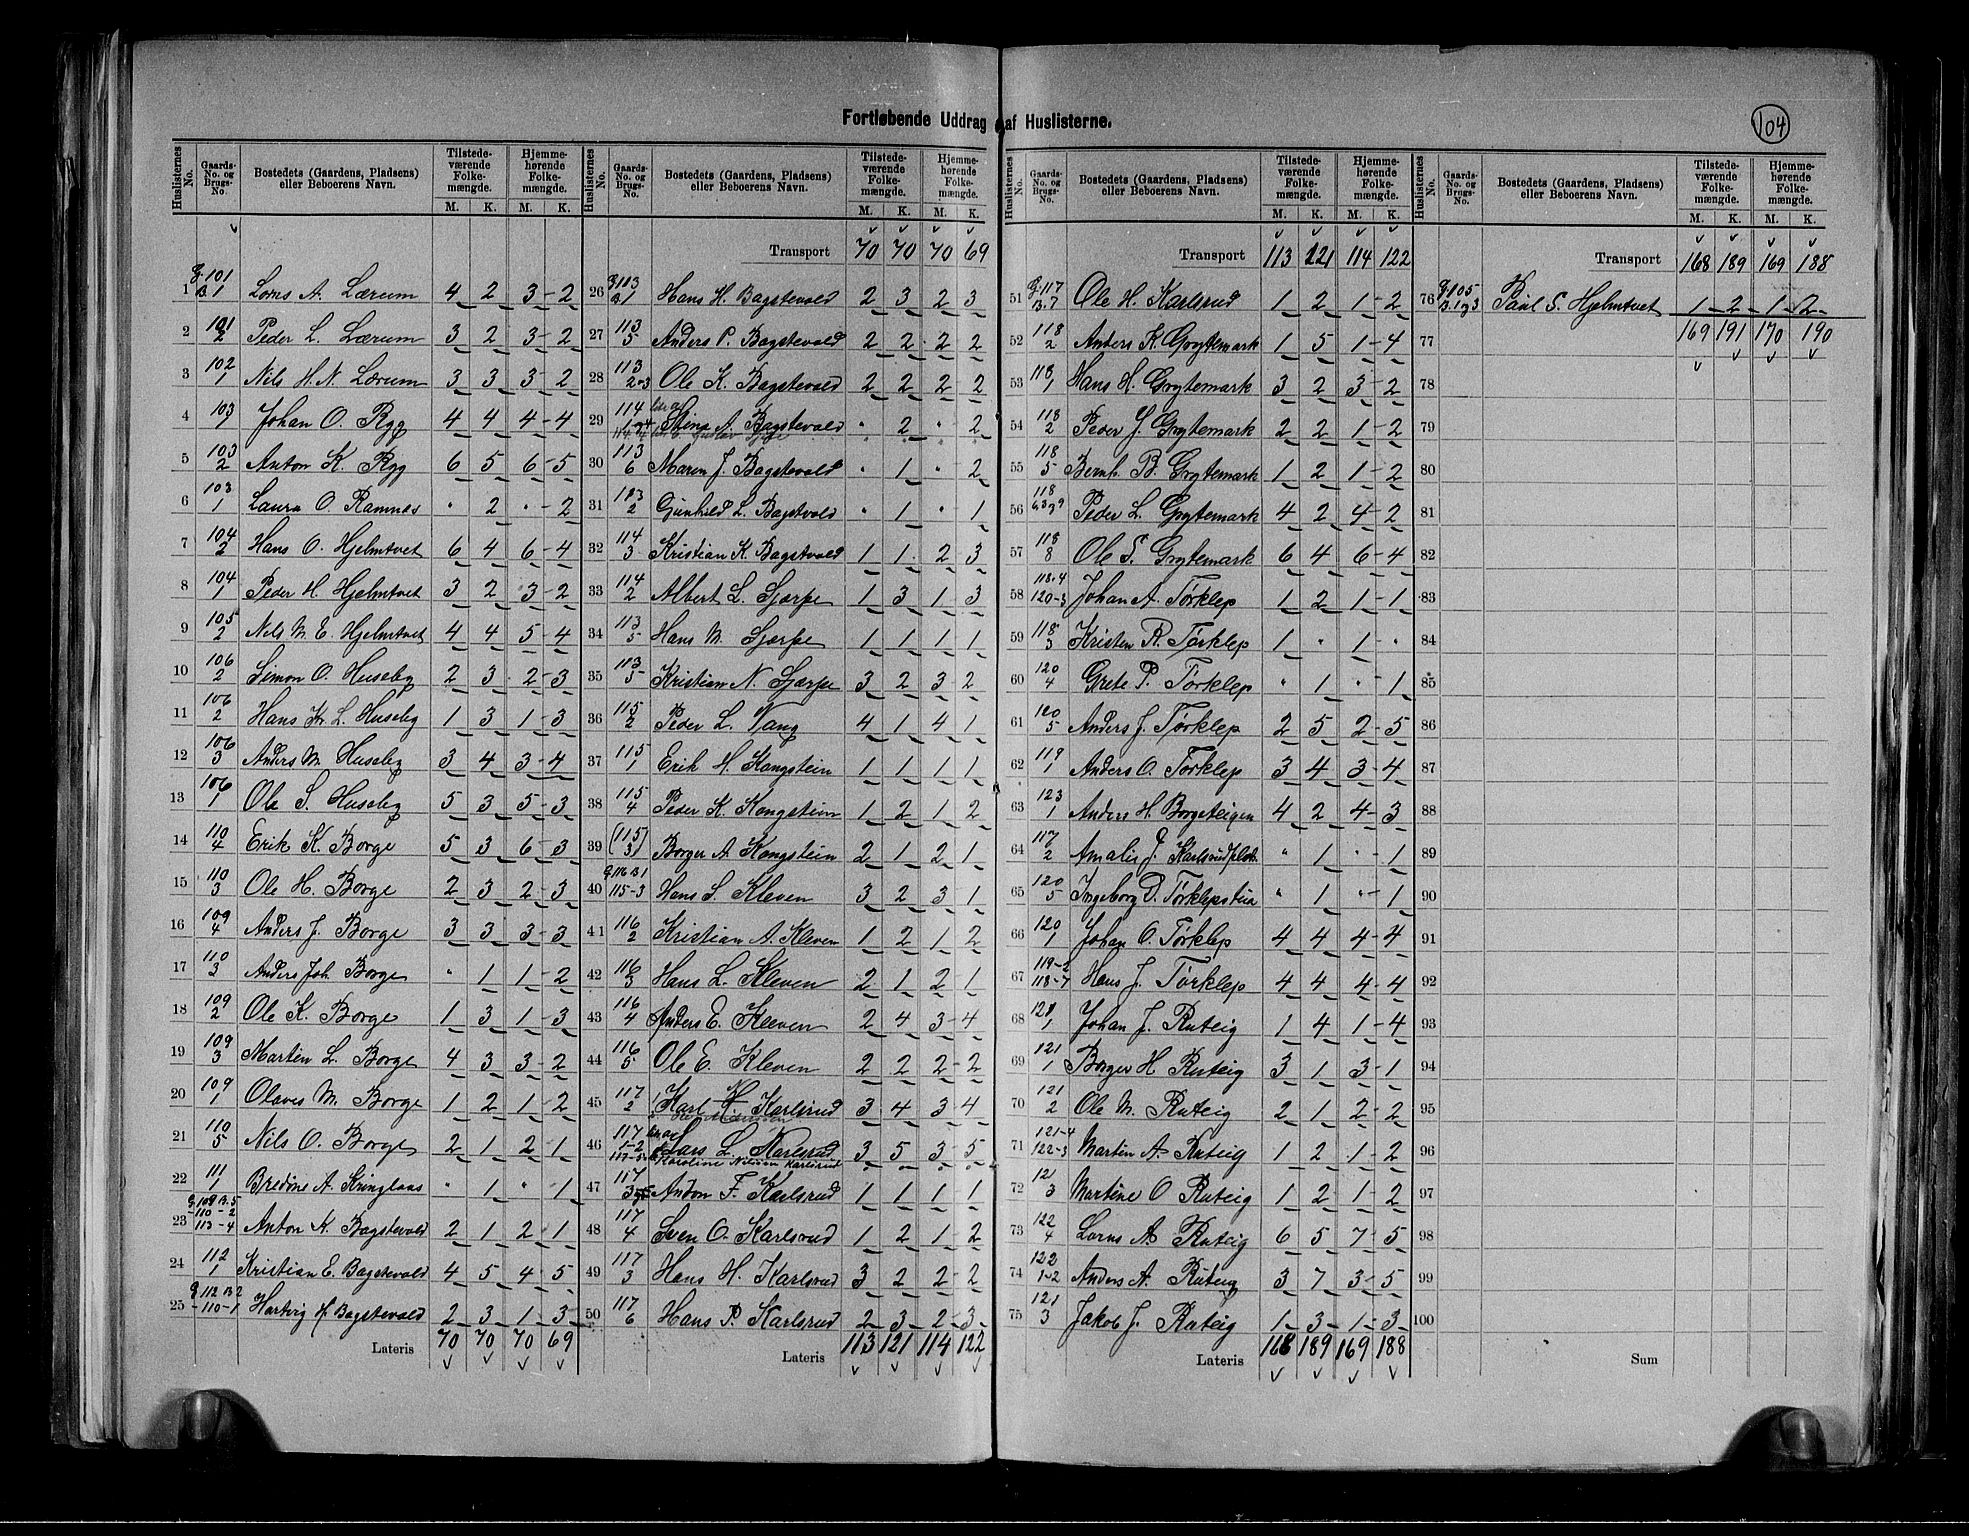 Fortløbende Uddrag af Huslisterne.
104
Huslisternes No. Gaards-No. og Brugs-No. Bostedets (Gaardens, Pladsens) eller Beboerens Navn. Tilstedeværende Folkemængde. M. K. Hjemmehørende Folkemængde. M. K.
1 G. 101 B. 1 Lorns A. Lærum 4 2 3 - 2
2 101 2 Peder L. Lærum 3 2 3 - 2
3 102 1 Nils H. N. Lærum 3 3 3 - 2
4 103 1 Johan O. Ryg 4 4 4 - 4
5 103 2 Anton K. Ryg 6 5 6 - 5
6 103 1 Laura O. Ramnæs " 2 " - 2
7 104 2 Hans O. Hjelmtvet 6 4 6 - 4
8 104 1 Peder H. Hjelmtvet 3 2 3 - 2
9 105 2 Nils M. E. Hjelmtvet 4 4 5 - 4
10 106 2 Simon O. Huseby 2 3 2 - 3
11 106 2 Hans Kr. L. Huseby 1 3 1 - 3
12 106 3 Anders M. Huseby 3 4 3 - 4
13 106 1 Ole S. Huseby 5 3 5 - 3
14 110 4 Erik K. Borge 5 3 6 - 3
15 110 3 Ole H. Borge 2 3 2 - 3
16 109 4 Anders J. Borge 3 3 3 - 3
17 110 3 Anders Joh. Borge " 1 1 - 2
18 109 2 Ole K. Borge 1 3 1 - 3
19 109 3 Martin L. Borge 4 3 3 - 2
20 109 1 Olaves M. Borge 1 2 1 - 2
21 110 5 Nils O. Borge 2 1 2 - 1
22 111 1 Bredine A. Kringlaas " 1 " 1
23 G. 109 B. 5 - 110 - 2 113 - 4 Anton K. Bagstevold 2 1 2 1
24 112 1 Kristian E. Bagstevold 4 5 4 - 5
25 G. 112 B. 2 - 110 - 1 Hartvig H. Bagstevold 2 3 1 - 3
Lateris 70 70 70 69
Huslisternes No. Gaards-No. og Brugs-No. Bostedets (Gaardens, Pladsens) eller Beboerens Navn. Tilstedeværende Folkemængde. M. K. Hjemmehørende Folkemængde. M. K.
Transport 70 70 70 69
26 G. 113 B. 1 Hans H. Bagstevold 2 3 2 3
27 113 5 Anders P. Bagstevold 2 2 2 2
28 113 2-3 Ole K. Bagstevold 2 2 2 2
29 114 Stina N. Bagstevold " 2 " 2
30 113 6 Maren J. Bagstevold " 1 " 2
31 113 2 Gunhild L. Bagstvold " 1 " 1
32 114 3 Kristian K. Bagstvold 1 1 2 3
33 114 2 Albert L. Gjærpe 1 3 1 3
34 113 5 Hans M. Gjærpe 1 1 1 1
35 113 5 Kristian N. Gjærpe 3 2 3 2
36 115 2 Peder L. Vang 4 1 4 1
37 115 1 Erik H. Kongstein 1 1 1 1
38 115 4 Peder K. Kongstein 1 2 1 2
39 (115 3) Borger A. Kongstein 2 1 2 1
40 G. 116 B. 1 115-3 Hans S. Kleven 3 2 3 1
41 116 2 Kristian A. Kleven 1 2 1 2
42 116 3 Hans L. Kleven 2 1 2 1
43 116 4 Anders E. Kleven 2 4 3 - 4
44 116 5 Ole E. Kleven 2 2 2 - 2
45 117 2 Karl N. Karlsrud 3 4 3 4
46 117 1-2 Lars L. Karlsrud 3 5 3 - 5
Karoline Nilsen Karlsrud
47 117 Andon F. Karlsrud 1 1 1 1
48 117 4 Sven O. Karlsrud 1 2 1 - 2
49 117 3 Hans H. Karlsrud 3 2 2 - 2
50 117 6 Hans P. Karlsrud 2 3 2 - 3
Lateris 113 121 114 122
Huslisternes No. Gaards-No. og Brugs-No. Bostedets (Gaardens, Pladsens) eller Beboerens Navn. Tilstedeværende Folkemængde. M. K. Hjemmehørende Folkemængde. M. K.
Transport 113 121 114 122
51 G. 117 B. 7 Ole H. Karlsrud 1 2 1 - 2
52 118 2 Anders K. Grytemark 1 5 1 - 4
53 118 1 Hans H. Grytemark 3 2 3 - 2
54 118 2 Peder J. Grytemark 2 2 1 - 2
55 118 5 Bernh. B. Grytemark 1 2 1 - 2
56 118 6,3og9 Peder L. Grytemark 4 2 4 - 2
57 118 8 Ole S. Grytemark 6 4 6 - 4
58 118-4 120-3 Johan A. Tørklep 1 2 1 - 1
59 118 3 Kristen R. Tørklep 1 " 1 - "
60 120 4 Grete P. Tørklep " 1 " - 1
61 120 5 Anders J. Tørklep 2 5 2 - 5
62 119 1 Anders O. Tørklep 3 4 3 - 4
63 123 1 Anders H. Borgeteigen 4 2 4 - 3
64 117 2 Amalie J. Karlsrudplds " 1 " - 1
65 120 5 Ingeborg D. Tørklepstua " 1 " - 1
66 120 1 Johan O. Tørklep 4 4 4 - 4
67 119-2 118-7 Hans J. Tørklep 4 4 4 - 4
68 121 1 Johan J. Ruteig 1 4 1 - 4
69 121 1 Borger H Ruteig 3 1 3 - 1
70 121 2 Ole M. Ruteig 2 1 2 - 2
71 121-4 122-3 Martin A. Ruteig 1 2 1 - 2
72 121 3 Martine O. Ruteig 1 2 1 - 2
73 122 4 Lorns A. Ruteig 6 5 7 - 5
74 122 1-2 Anders A. Ruteig 3 7 3 - 5
75 121 3 Jakob J. Ruteig 1 - 3 - 1 - 3
Lateris 168 189 169 188
Huslisternes No. Gaards-No. og Brugs-No. Bostedets (Gaardens, Pladsens) eller Beboerens Navn. Tilstedeværende Folkemængde. M. K. Hjemmehørende Folkemængde. M. K.
Transport 168 189 169 188
76 G. 105 B. 1og3 Paul S. Hjelmtvet 1 - 2 - 1 - 2
77 169 191 170 190
78
79
80
81
82
83
84
85
86
87
88
89
90
91
92
93
94
95
96
97
98
99
100
Sum